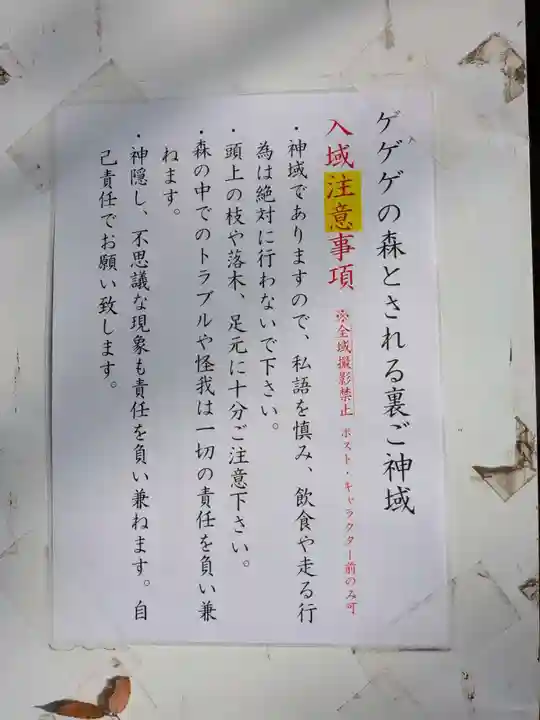 ゲゲゲの森とされる裏ご神域
入域注意事項 ※全域撮影禁止 ポスト・キャラクター前のみ可
・神域でありますので、私語を慎み、飲食や走る行
為は絶対に行わないで下さい。
・頭上の枝や落木、足元に十分ご注意下さい。
・森の中でのトラブルや怪我は一切の責任を負い兼
ねます。
・神隠し、不思議な現象も責任を負い兼ねます。自
己責任でお願い致します。